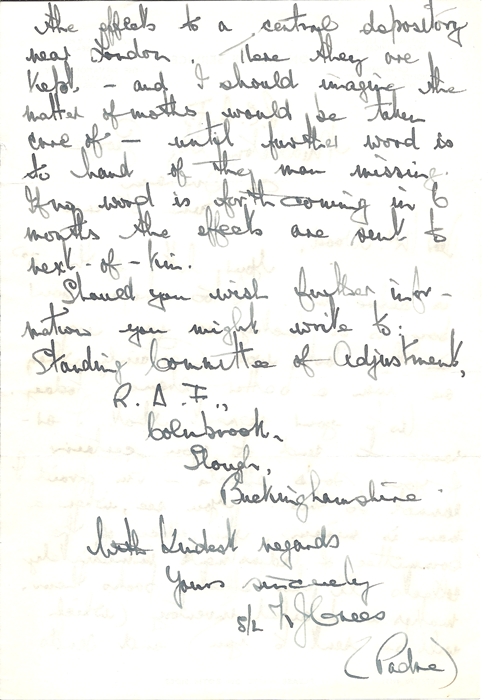 the effects to a central depository
near London. There they are
kept - and I should imagine the
matter of moths would be taken
care of - until further word is
to hand of the man missing.
If no word is forthcoming in 6
months the effects are sent to
next-of-kin.
Should you wish further infor-
mation you might write to:
Standing Committee of Adjustment,
R. A. F.,
Colnbrook,
Slough,
Buckinghamshire.
With kindest regards
Yours sincerely
S/L
(Padre)